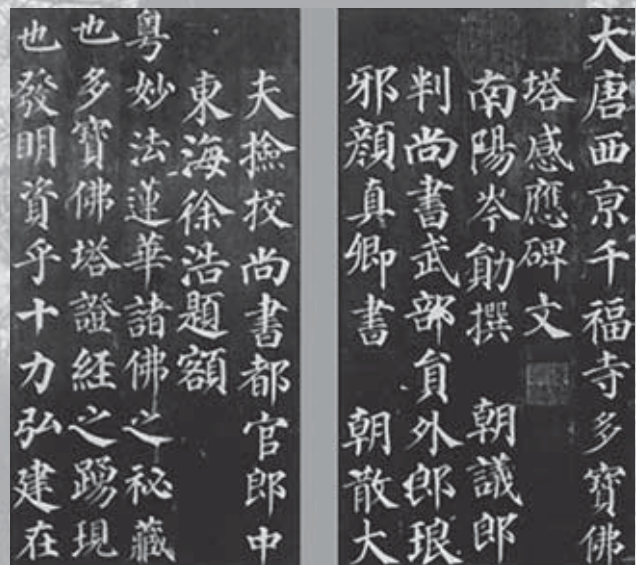 大唐西京千福寺多寶佛
塔感應碑文
南陽岑勛撰　朝議郎
判尚書武部員外郎琅
邪顏真卿書　朝散大
夫撿挍尚書都官郎中
東海徐浩題額
粵妙法蓮華諸佛之祕藏
也多寶佛塔證經之踴現
也發明資乎十力弘建在